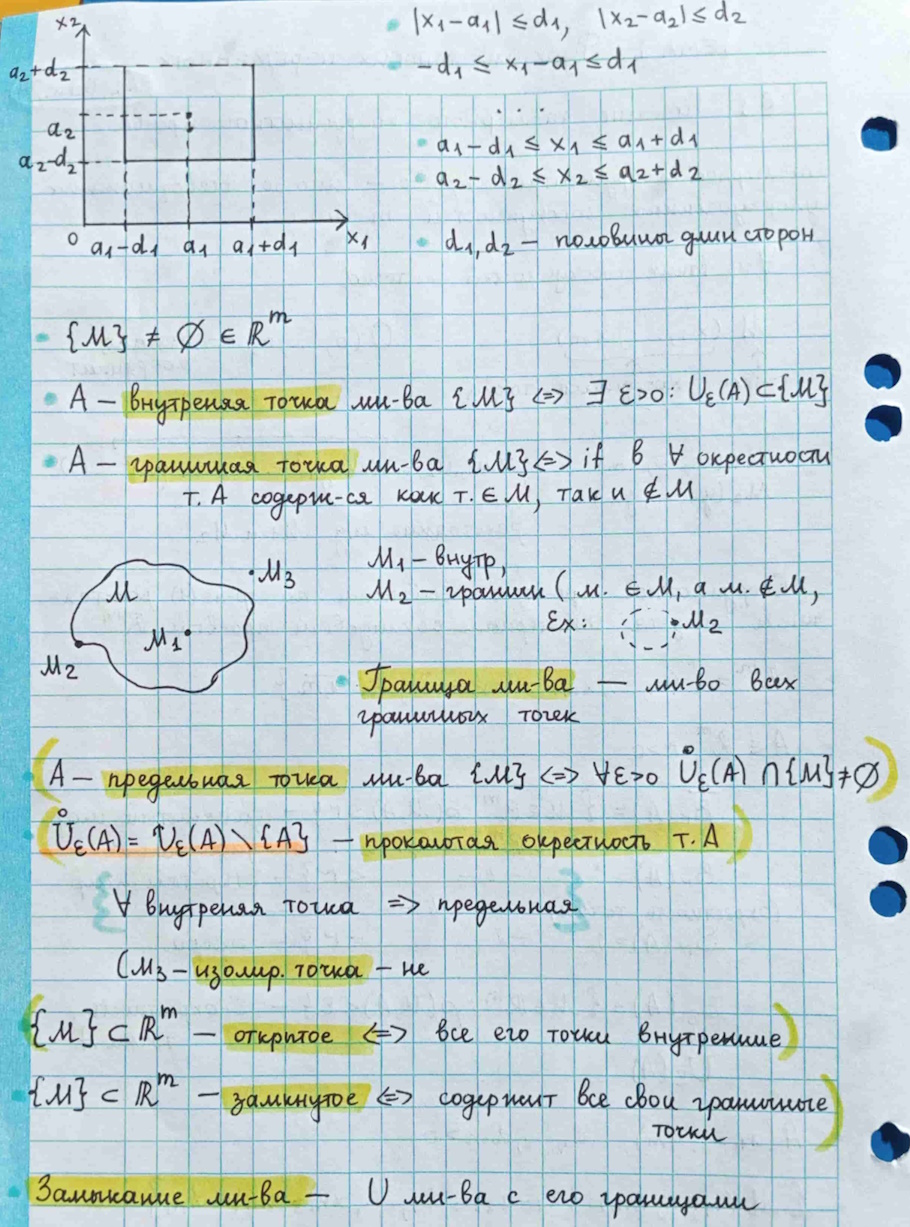 x2
a2+d2
a2
a2-d2
0 a1-d1 a1 a1+d1 x1
|x1-a1| ≤ d1, |x2-a2| ≤ d2
-d1 ≤ x1-a1 ≤ d1
. . .
a1-d1 ≤ x1 ≤ a1+d1
a2-d2 ≤ x2 ≤ a2+d2
d1, d2 – половины длин сторон
{M} ≠ ∅ ∈ ℝ^m
A – внутреняя точка мн-ва {M} <=> ∃ ε>0: Uε(A) ⊂ {M}
A – граничная точка мн-ва {M} <=> if в ∀ окрестности
т. A содерж-ся как т. ∈ M, так и ∉ M
M
M1
M2
M3
M1 – внутр,
M2 – гранич ( м. ∈ M, а м. ∉ M,
Ex: M2
Граница мн-ва — мн-во всех
граничных точек
(A – предельная точка мн-ва {M} <=> ∀ε>0 Ůε(A) ∩ {M} ≠ ∅)
(Ůε(A) = Uε(A) \ {A} – проколотая окрестность т. A)
{∀ внутреняя точка => предельная}
(M3 – изолир. точка – не
({M} ⊂ ℝ^m – открытое <=> все его точки внутренние)
{M} ⊂ ℝ^m – замкнутое <=> содержит все свои граничные
точки)
Замыкание мн-ва – U мн-ва с его границами